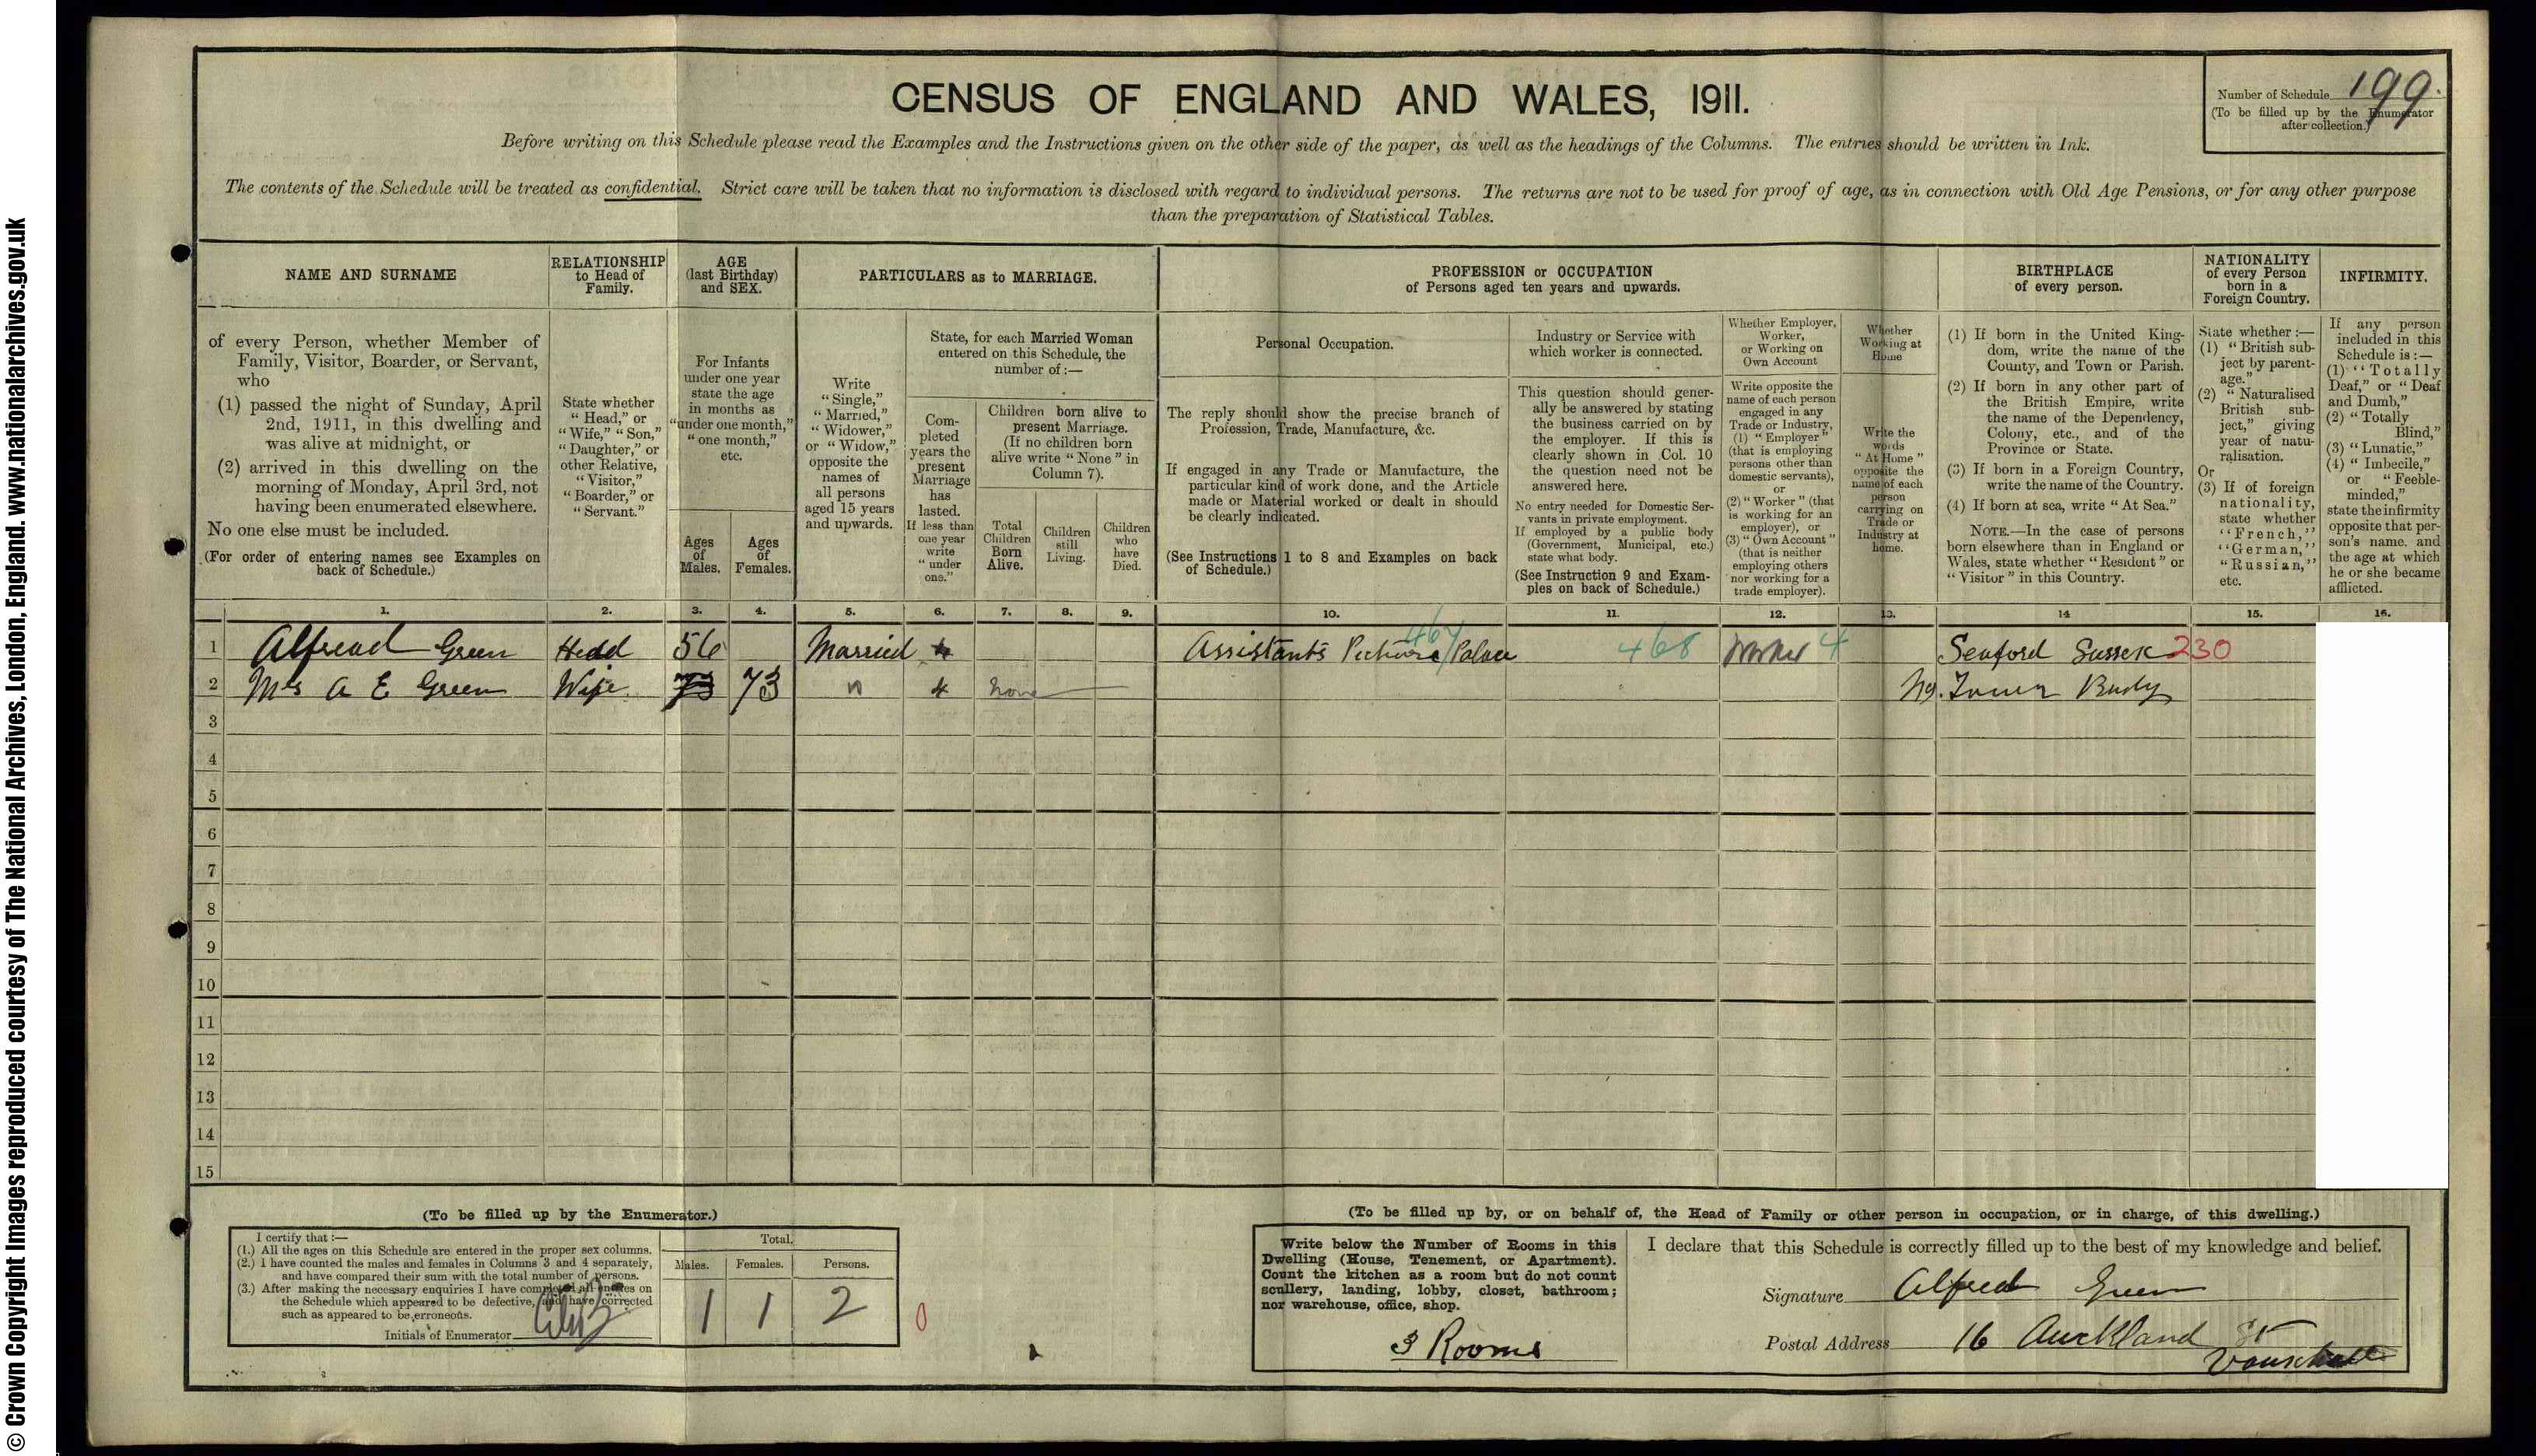 © Crown Copyright Images reproduced courtesy of The National Archives, London, England. www.nationalarchives.gov.uk
CENSUS OF ENGLAND AND WALES, 1911.
Number of Schedule 199.
(To be filled up by the Enumerator
after collection.)
Before writing on this Schedule please read the Examples and the Instructions given on the other side of the paper, as well as the headings of the Columns. The entries should be written in Ink.
The contents of the Schedule will be treated as confidential. Strict care will be taken that no information is disclosed with regard to individual persons. The returns are not to be used for proof of age, as in connection with Old Age Pensions, or for any other purpose
than the preparation of Statistical Tables.
NAME AND SURNAME
of every Person, whether Member of
Family, Visitor, Boarder, or Servant,
who
(1) passed the night of Sunday, April
2nd, 1911, in this dwelling and
was alive at midnight, or
(2) arrived in this dwelling on the
morning of Monday, April 3rd, not
having been enumerated elsewhere.
No one else must be included.
(For order of entering names see Examples on
back of Schedule.)
RELATIONSHIP
to Head of
Family.
State whether
"Head," or
"Wife," "Son,"
"Daughter," or
other Relative,
"Visitor,"
"Boarder," or
"Servant."
AGE
(last Birthday)
and SEX.
For Infants
under one year
state the age
in months as
"under one month,"
"one month,"
etc.
Ages
of
Males.
Ages
of
Females.
PARTICULARS as to MARRIAGE.
Write
"Single,"
"Married,"
"Widower,"
or "Widow,"
opposite the
names of
all persons
aged 15 years
and upwards.
State, for each Married Woman
entered on this Schedule, the
number of:—
Com-
pleted
years the
present
Marriage
has
lasted.
If less than
one year
write
"under
one."
Children born alive to
present Marriage.
(If no children born
alive write "None" in
Column 7).
Total
Children
Born
Alive.
Children
still
Living.
Children
who
have
Died.
PROFESSION or OCCUPATION
of Persons aged ten years and upwards.
Personal Occupation.
The reply should show the precise branch of
Profession, Trade, Manufacture, &c.
If engaged in any Trade or Manufacture, the
particular kind of work done, and the Article
made or Material worked or dealt in should
be clearly indicated.
(See Instructions 1 to 8 and Examples on back
of Schedule.)
Industry or Service with
which worker is connected.
This question should gener-
ally be answered by stating
the business carried on by
the employer. If this is
clearly shown in Col. 10
the question need not be
answered here.
No entry needed for Domestic Ser-
vants in private employment.
If employed by a public body
(Government, Municipal, etc.)
state what body.
(See Instruction 9 and Exam-
ples on back of Schedule.)
Whether Employer,
Worker,
or Working on
Own Account
Write opposite the
name of each person
engaged in any
Trade or Industry,
(1) "Employer"
(that is employing
persons other than
domestic servants),
or
(2) "Worker" (that
is working for an
employer), or
(3) "Own Account"
(that is neither
employing others
nor working for a
trade employer).
Whether
Working at
Home
Write the
words
"At Home"
opposite the
name of each
person
carrying on
Trade or
Industry at
home.
BIRTHPLACE
of every person.
(1) If born in the United King-
dom, write the name of the
County, and Town or Parish.
(2) If born in any other part of
the British Empire, write
the name of the Dependency,
Colony, etc., and of the
Province or State.
(3) If born in a Foreign Country,
write the name of the Country.
(4) If born at sea, write "At Sea."
NOTE.—In the case of persons
born elsewhere than in England or
Wales, state whether "Resident" or
"Visitor" in this Country.
NATIONALITY
of every Person
born in a
Foreign Country.
State whether:—
(1) "British sub-
ject by parent-
age."
(2) "Naturalised
British sub-
ject," giving
year of natu-
ralisation.
Or
(3) If of foreign
nationality,
state whether
"French,"
"German,"
"Russian,"
etc.
INFIRMITY.
If any person
included in this
Schedule is:—
(1) "Totally
Deaf," or "Deaf
and Dumb,"
(2) "Totally
Blind,"
(3) "Lunatic,"
(4) "Imbecile,"
or "Feeble-
minded,"
state the infirmity
opposite that per-
son's name, and
the age at which
he or she became
afflicted.
1. 2. 3. 4. 5. 6. 7. 8. 9. 10. 11. 12. 13. 14 15. 16.
1 Alfread Green Hedd 56 Married 4 Assistants Pichure Palace 467 468 Worker 4 Seaford Sussex 230
2 Mrs A E Green Wife 73 73 " 4 None
3
4
5
6
7
8
9
10
11
12
13
14
15
(To be filled up by the Enumerator.)
I certify that:—
(1.) All the ages on this Schedule are entered in the proper sex columns.
(2.) I have counted the males and females in Columns 3 and 4 separately,
and have compared their sum with the total number of persons.
(3.) After making the necessary enquiries I have completed all entries on
the Schedule which appeared to be defective, and have corrected
such as appeared to be erroneous.
Initials of Enumerator
Total.
Males. Females. Persons.
1 1 2
0
(To be filled up by, or on behalf of, the Head of Family or other person in occupation, or in charge, of this dwelling.)
Write below the Number of Rooms in this
Dwelling (House, Tenement, or Apartment).
Count the kitchen as a room but do not count
scullery, landing, lobby, closet, bathroom;
nor warehouse, office, shop.
3 Rooms
I declare that this Schedule is correctly filled up to the best of my knowledge and belief.
Signature Alfred Green
Postal Address 16 Auckland St